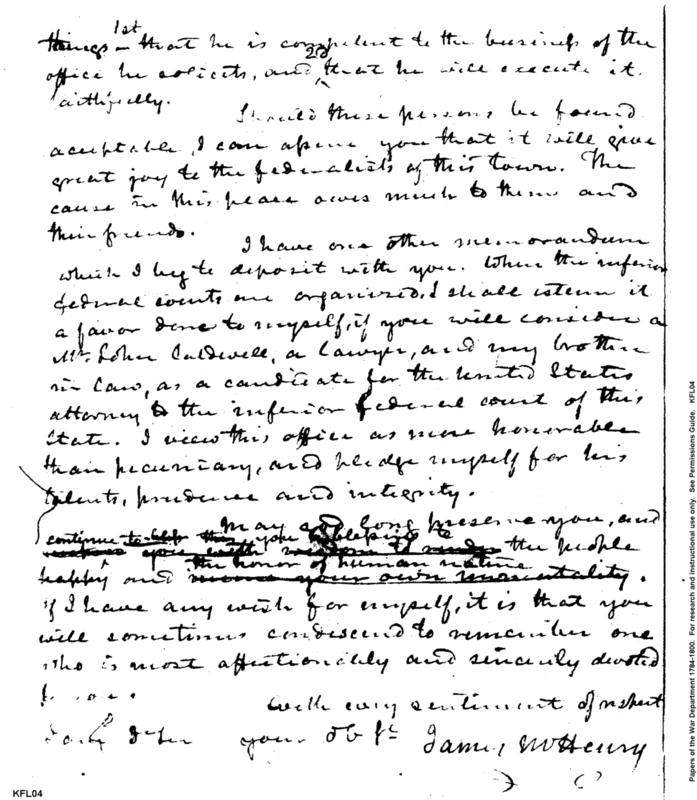 1st
things - that he is competent to the business of the
2d
office he solicits, and that he will execute it
faithfully.
Should these persons be found
acceptable, I can assure you that it will give
great joy to the federalists of this town. The
cause in this place owes much to them and
their friends.
I have one other memorandum
which I beg to deposit with you. When the inferior
federal courts are organized, I shall esteem it
a favor done to myself, if you will consider a
Mr. John Caldwell, a lawyer, and my brother
in law, as a candidate for the United States
attorney to the inferior federal court of this
State. I view this office as more honorable
than pecuniary, and pledge myself for his
talents, prudence and integrity.
May god long preserve you, and
continue to you
you with wisdom the people
the honor of human nature
happy and your own immortality.
If I have any wish for myself, it is that you
will sometimes condescend to remember one
who is most affectionately and sincerely devoted
to you.
With every sentiment of respect
your Ob St James McHenry
KFL04
Papers of the War Department 1784-1800. For research and instructional use only. See Permissions Guide. KFL04